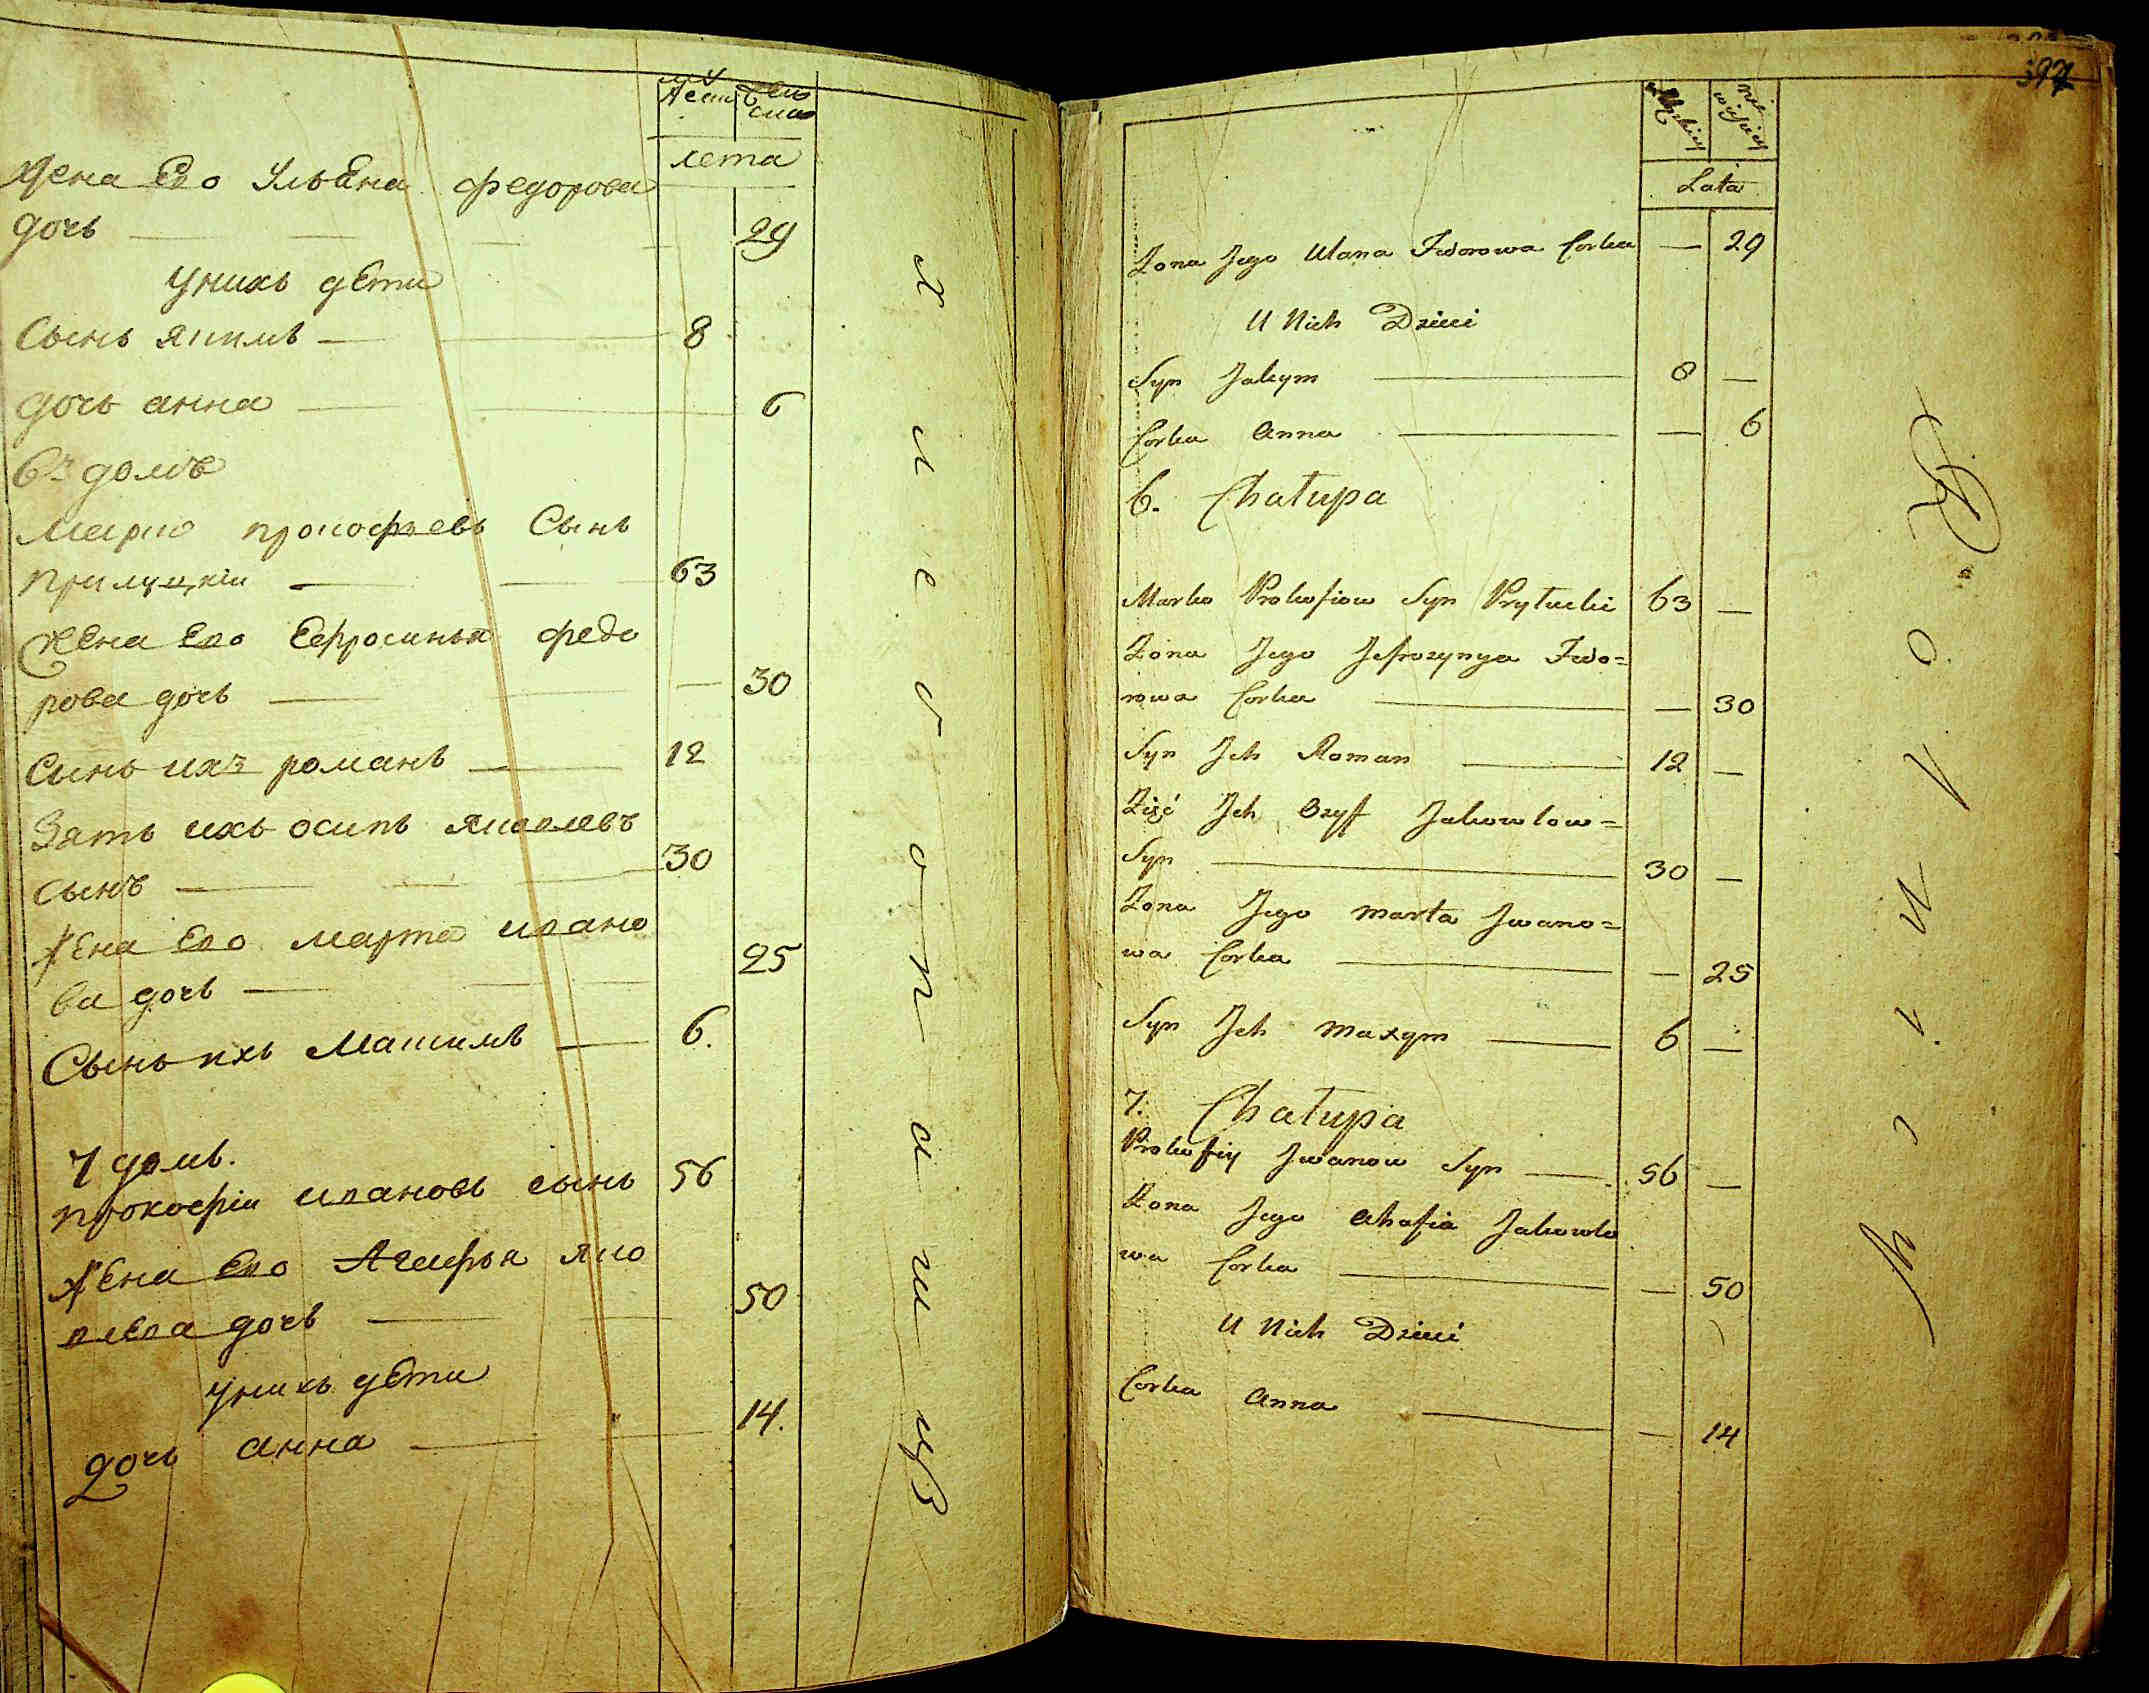 муж женска
лета
жена Его Ульяна федорова
дочь 29
у нихъ дети
Сынъ якимъ 8
дочь анна 6
6й домъ
Марко прокофьевъ Сынъ
прилуцкiи 63
жена Его Ефросинья федо
рова дочь 30
Сынъ ихъ романъ 12
Зять ихъ осипъ яковлевъ
сынъ 30
жена Его марта ивано
ва дочь 25
Сынъ ихъ Максимъ 6.
7 домъ.
прокофiи ивановъ сынъ 56
жена Его Агафья яко
влева дочь 50
у нихъ дети
дочь анна 14.
397
Lata
Zona Jego Ulana Fedorowa Corka — 29
U Nich Dzieci
Syn Jakym 8 —
Corka Anna — 6
6. Chałupa
Marko Prokofiow Syn Pryłucki 63 —
Zona Jego Jefrozynya Fedo=
rowa Corka — 30
Syn Jch Roman 12 —
Zięć Jch Ozyf Jakowlow=
Syn 30 —
Zona Jego Marta Jwano=
wa Corka — 25
Syn Jch Maxym 6 —
7. Chałupa
Prokofiy Jwanow Syn 56 —
Zona Jego Ahafia Jakowlo
wa Corka — 50
U Nich Dzieci
Corka Anna — 14